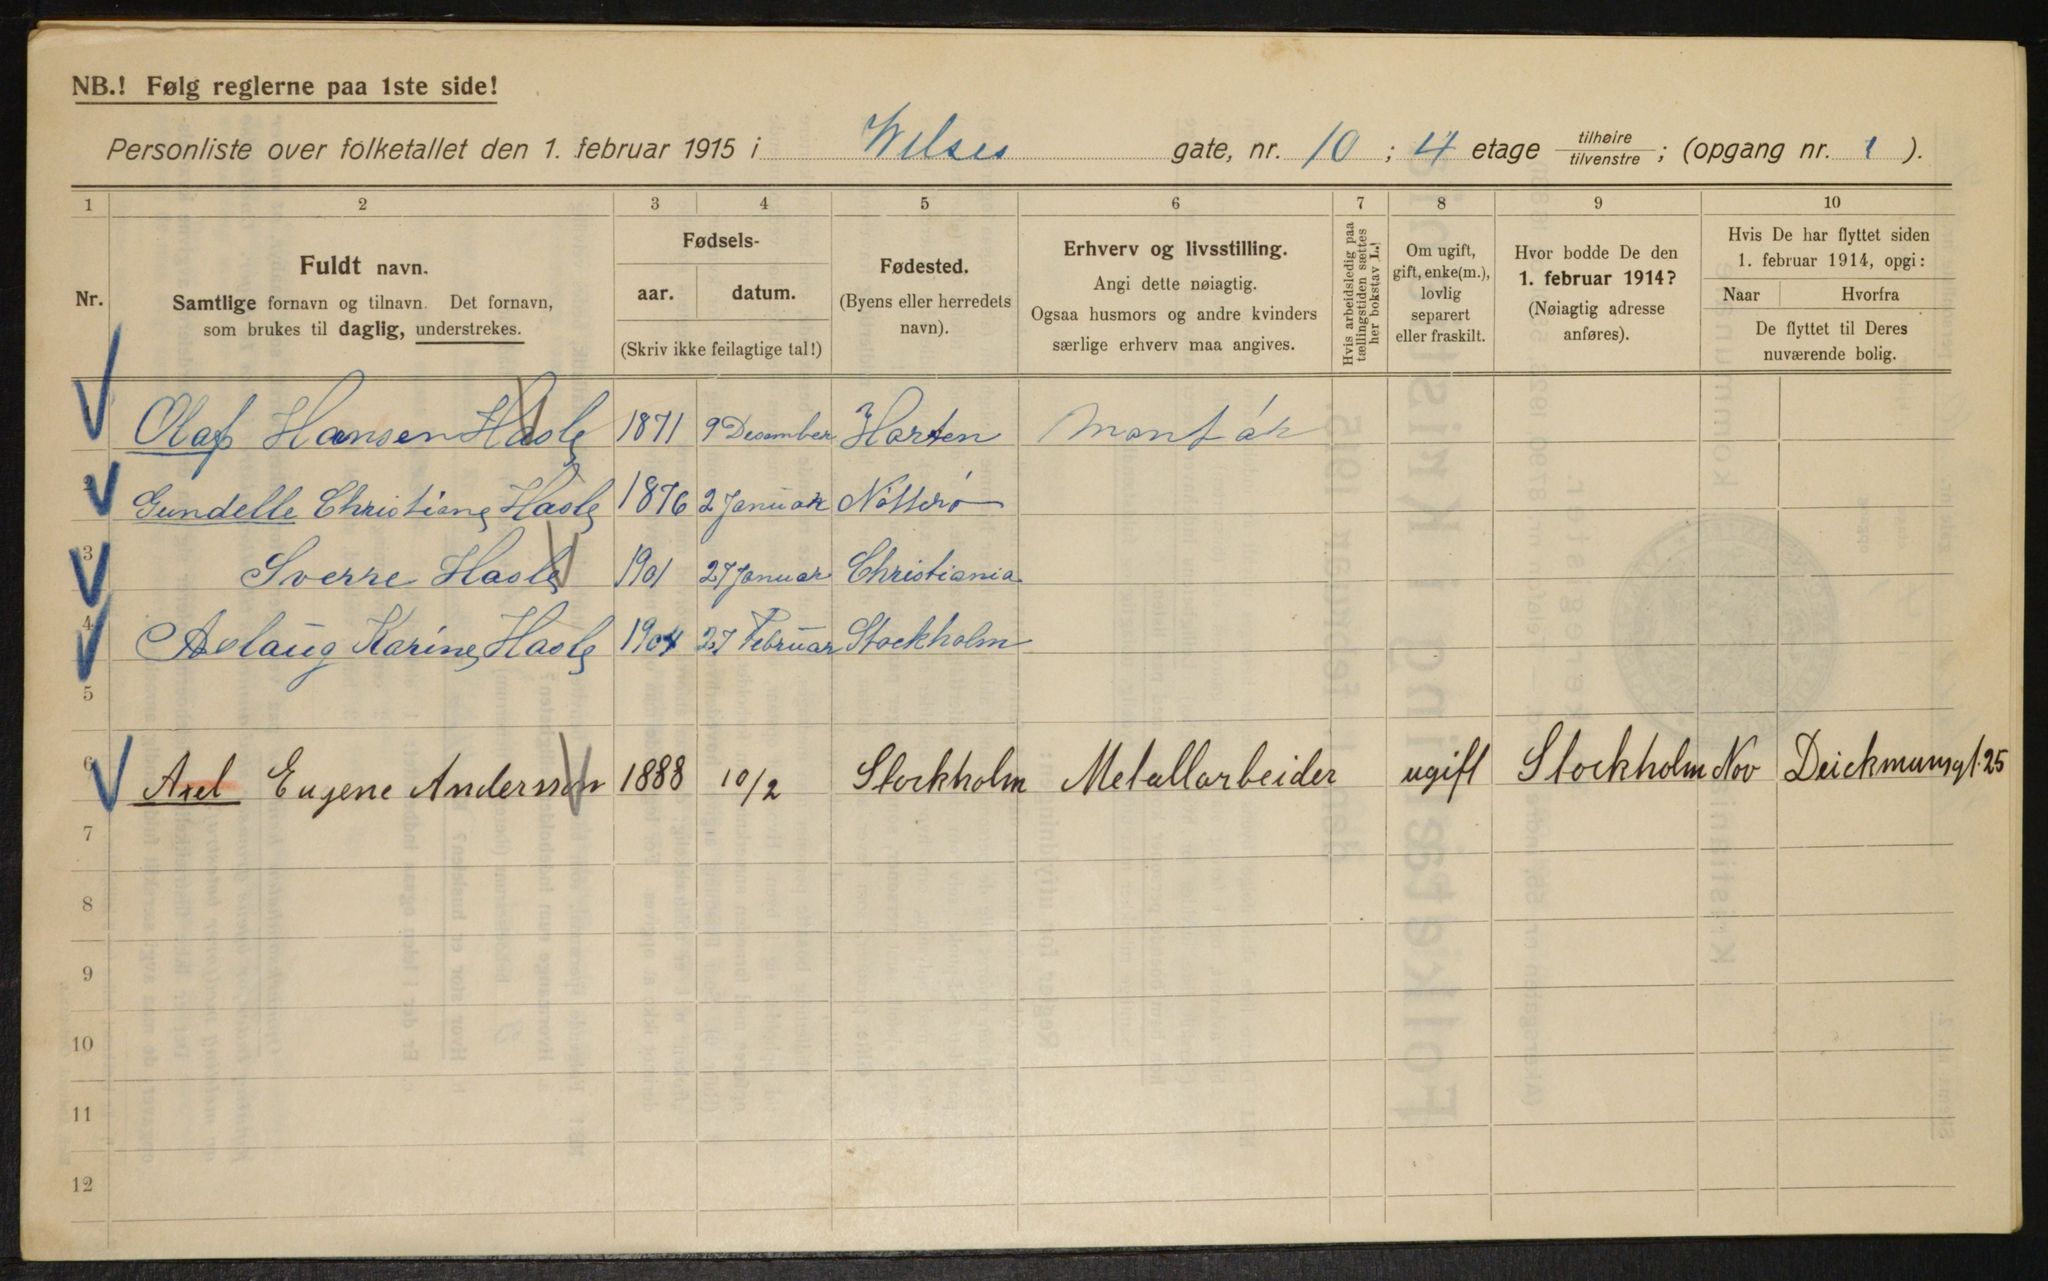 NB.! Følg reglerne paa 1ste side!
Personliste over folketallet den 1. februar 1915 i Wilses gate, nr. 10 ; 4 etage tilhøire / tilvenstre ; (opgang nr. 1 ).
1 2 3 4 5 6 7 8 9 10
Nr.
Fuldt navn.
Samtlige fornavn og tilnavn. Det fornavn,
som brukes til daglig, understrekes.
Fødsels-
aar. datum.
(Skriv ikke feilagtige tal!)
Fødested.
(Byens eller herredets
navn).
Erhverv og livsstilling.
Angi dette nøiagtig.
Ogsaa husmors og andre kvinders
særlige erhverv maa angives.
Hvis arbeidsledig paa
tællingstiden sættes
her bokstav L.!
Om ugift,
gift, enke(m.),
lovlig
separert
eller fraskilt.
Hvor bodde De den
1. februar 1914?
(Nøiagtig adresse
anføres).
Hvis De har flyttet siden
1. februar 1914, opgi:
Naar Hvorfra
De flyttet til Deres
nuværende bolig.
Olaf Hansen Hasle 1871 9 Desember Horten Montør
2 Gundelle Christiane Hasle 1876 2 Januar Nøtterø
3 Sverre Hasle 1901 27 Januar Christiania
4 Aslaug Karine Hasle 1904 27 Februar Stockholm
5
6 Axel Eugene Andersson 1888 10/2 Stockholm Metallarbeider ugift Stockholm Nov Deickmansgt. 25
7
8
9
10
11
12